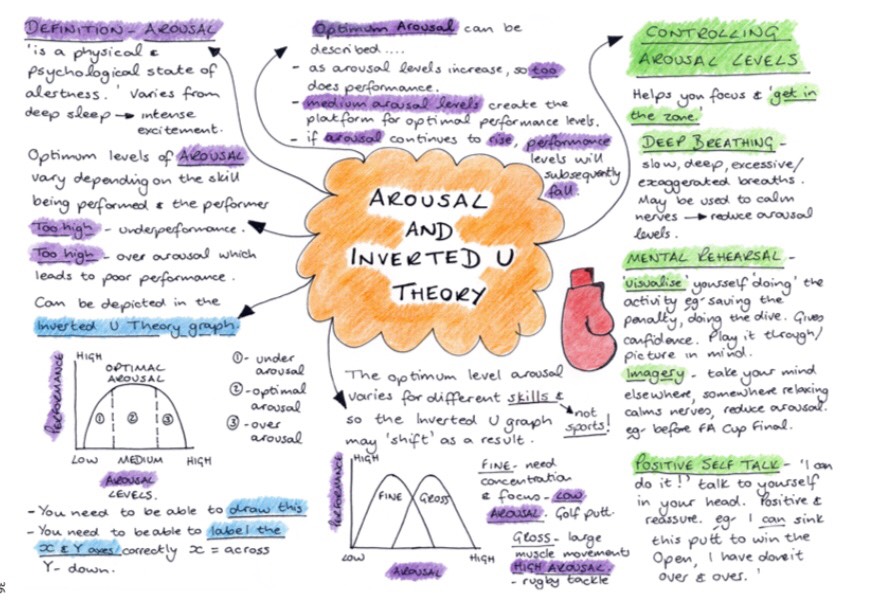 DEFINITION - AROUSAL
'is a physical &
psychological state of
alertness.' varies from
deep sleep → intense
excitement.
Optimum levels of AROUSAL
vary depending on the skill
being performed & the performer
Too high - underperformance.
Too high - over arousal which
leads to poor performance.
Can be depicted in the
Inverted U Theory graph
PERFORMANCE
HIGH
OPTIMAL
AROUSAL
① ② ③
LOW MEDIUM HIGH
AROUSAL
LEVELS.
① - under
arousal
② - optimal
arousal
③ - over
arousal
- You need to be able to draw this
- You need to be able to label the
X & Y axes correctly x = across
Y - down.
Optimum Arousal can be
described....
- as arousal levels increase, so too
does performance.
- medium arousal levels create the
platform for optimal performance levels.
- if arousal continues to rise, performance
levels will
subsequently
fall.
AROUSAL
AND
INVERTED U
THEORY
The optimum level arousal
varies for different skills &
not
sports!
so the Inverted U graph
may 'shift' as a result.
PERFORMANCE
HIGH
FINE GROSS
LOW HIGH
AROUSAL
FINE - need
concentration
& focus - LOW
AROUSAL. Golf putt.
GROSS - large
muscle movements
HIGH AROUSAL.
- rugby tackle
CONTROLLING
AROUSAL LEVELS
Helps you focus & 'get in
the zone'
DEEP BREATHING -
slow, deep, excessive/
exaggerated breaths.
May be used to calm
nerves → reduce arousal
levels.
MENTAL REHEARSAL -
'visualise' yourself 'doing' the
activity eg - saving the
penalty, doing the dive. Gives
confidence. Play it through/
picture in mind.
Imagery - take your mind
elsewhere, somewhere relaxing
calms nerves, reduce arousal.
eg - before FA Cup Final.
POSITIVE SELF TALK - 'I can
do it!' talk to yourself
in your head. Positive &
reassure. eg - I can sink
this putt to win the
Open, I have done it
over & over.'